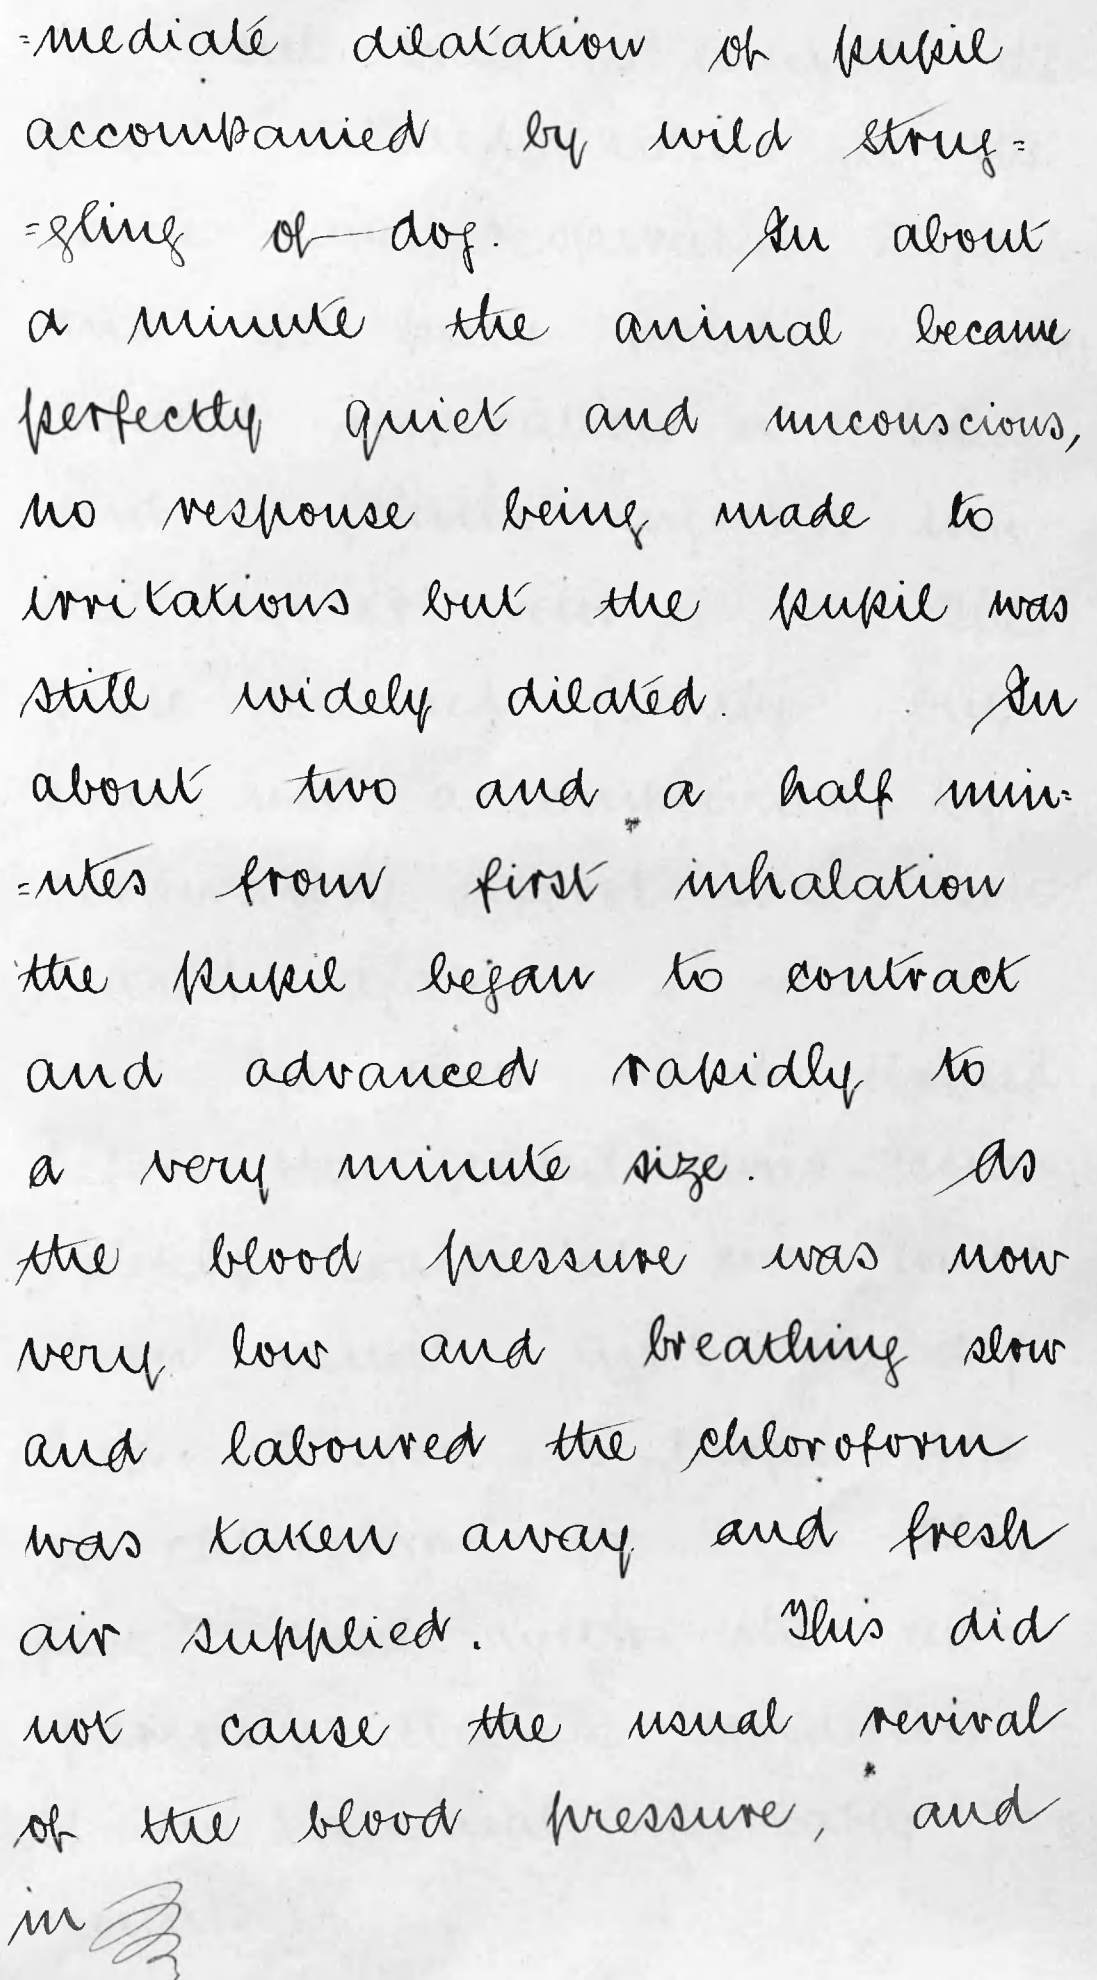 =mediate dilatation of pupil
accompanied by wild strug=
=gling of dog. In about
a minute the animal became
perfectly quiet and unconscious,
no response being made to
irritations but the pupil was
still widely dilated. In
about two and a half min=
=utes from first inhalation
the pupil began to contract
and advanced rapidly to
a very minute size. As
the blood pressure was now
very low and breathing slow
and laboured the chloroform
was taken away and fresh
air supplied. This did
not cause the usual revival
of the blood pressure, and
in